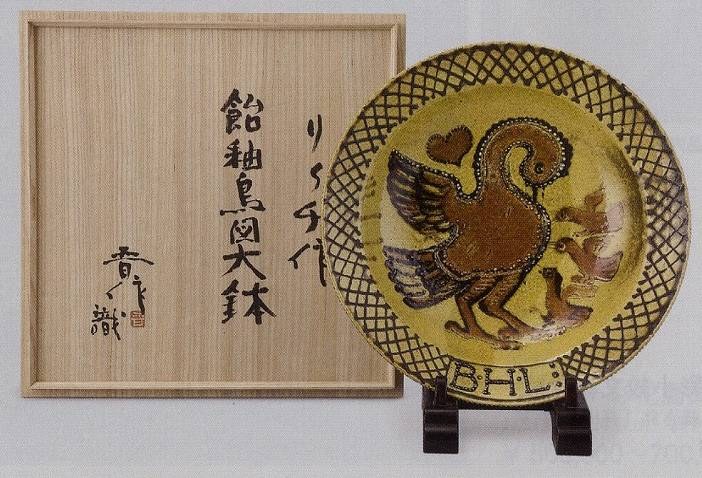 リーチ作
飴釉鳥図大鉢
晋作識
B·H·L: